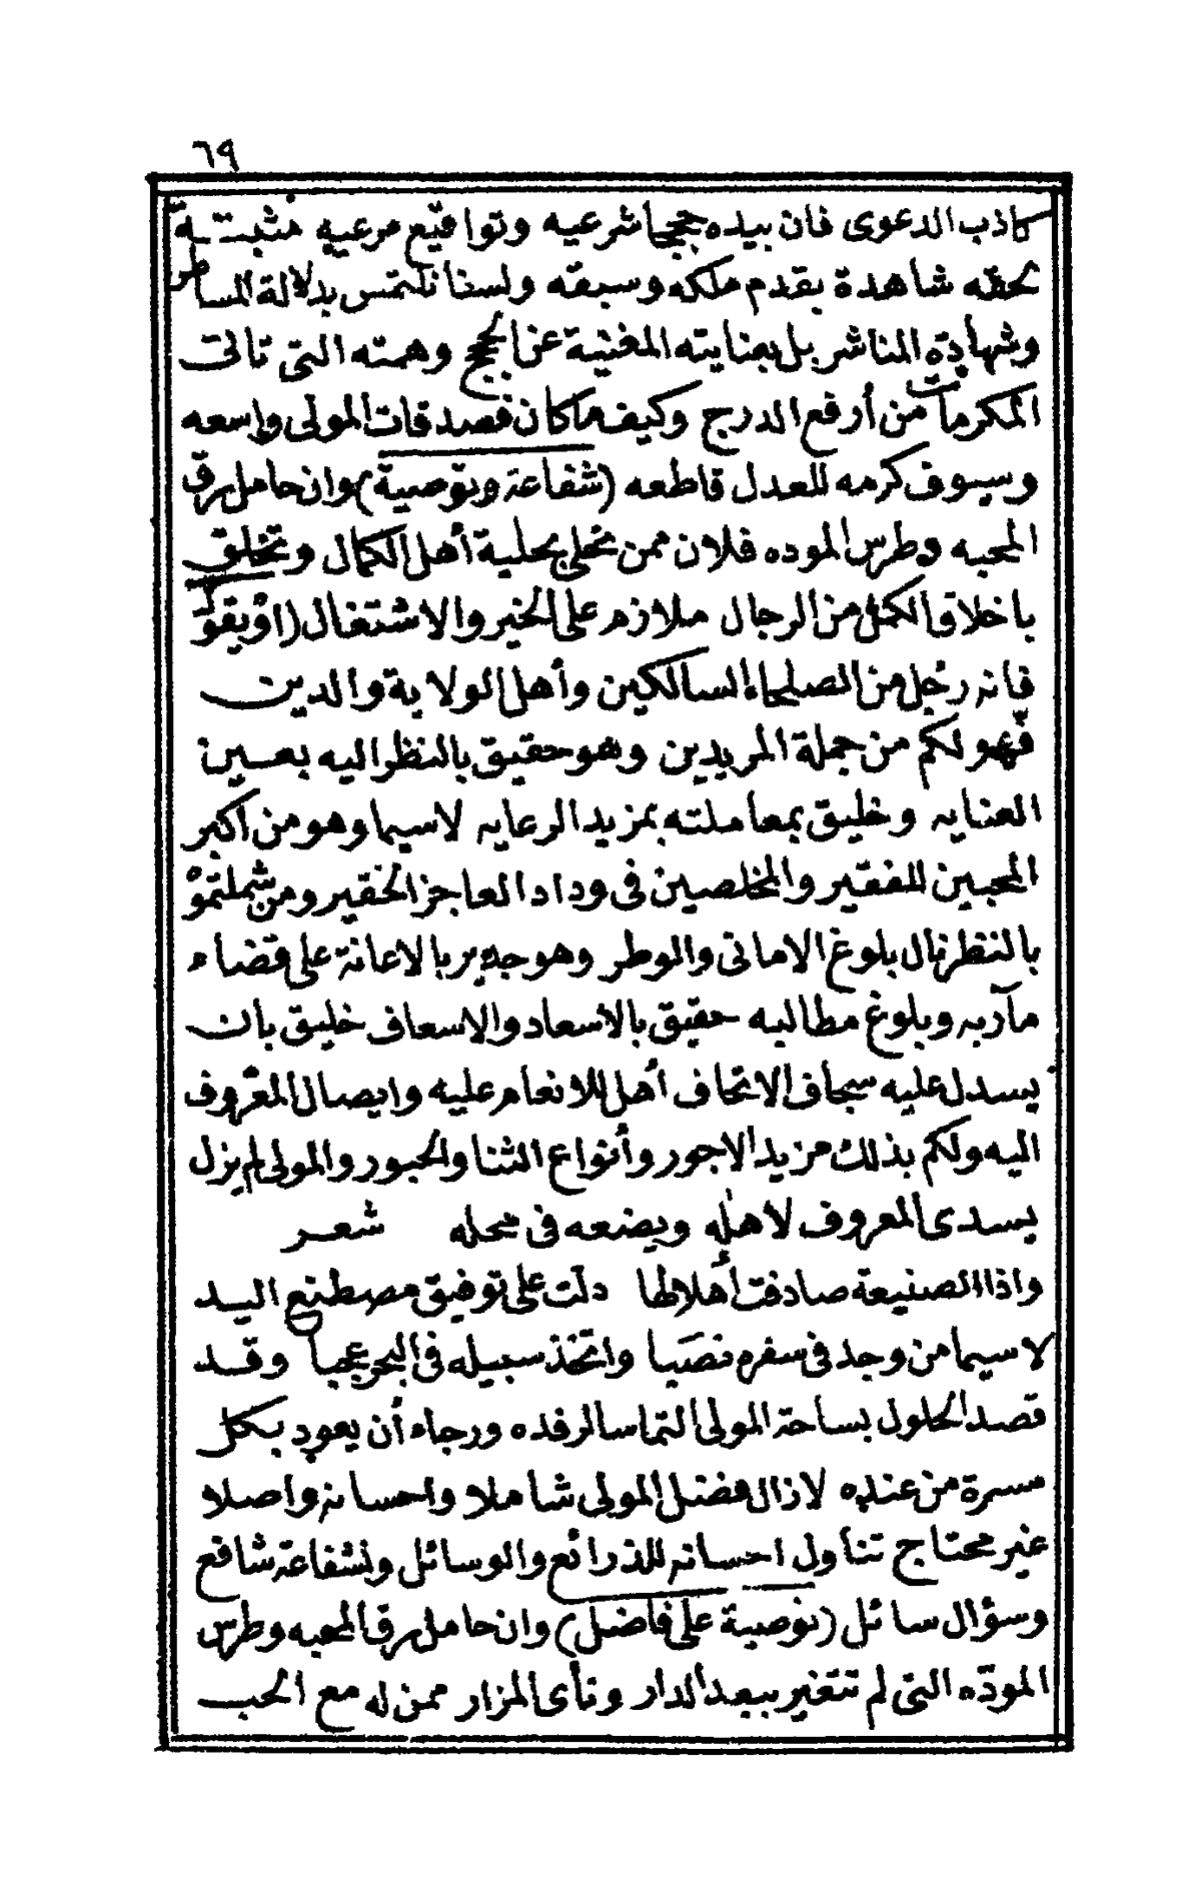 ٦٩
كاذب الدعوى فان بيده حججا شرعيه وتواقيع مرعيه مثبتة
لحقه شاهدة بقدم ملكه وسبقه ولسنا نلتمس بدلالة المساطر
وشهادة المناشر بل بعنايته المغنية عن الحجج وهمته التى نالت
المكرمات من أرفع الدرج وكيف ما كان فصدقات المولى واسعه
وسيوف كرمه للعدل قاطعه (شفاعة وتوصية) وان حامل رق
المحبه وطرس الموده فلان ممن تحلى بحلية أهل الكمال وتخلق
باخلاق الكمل من الرجال ملازم على الخير والاشتغال (او يقول
فانه رجل من الصلحاء السالكين وأهل الولاية والدين
فهو لكم من جملة المريدين وهو حقيق بالنظر اليه بعين
العنايه وخليق بمعاملته بمزيد الرعايه لاسيما وهو من اكبر
المحبين للفقير والمخلصين فى وداد العاجز الحقير ومن شملتموه
بالنظر نال بلوغ الامانى والوطر وهو جدير بالاعانة على قضاء
مآربه وبلوغ مطالبه حقيق بالاسعاد والاسعاف خليق بان
يسدل عليه سجاف الاتحاف أهل للانعام عليه وايصال المعروف
اليه ولكم بذلك مزيد الاجور وأنواع الثنا والحبور والمولى لم يزل
يسدى المعروف لاهله ويضعه فى محله شعر
واذا الصنيعة صادفت أهلا لها دلت على توفيق مصطنع اليد
لاسيما من وجد فى سفره نصبا واتخذ سبيله فى البحر عجبا وقد
قصد الحلول بساحة المولى التماسا لرفده ورجاء أن يعود بكل
مسرة من عنده لازال فضل المولى شاملا واحسانه واصلا
غير محتاج تناول احسانه للذرائع والوسائل ولشفاعة شافع
وسؤال سائل (توصية على فاضل) وان حامل رق المحبه وطرس
المودّه التى لم تتغير ببعد الدار ونأى المزار ممن له مع الحب